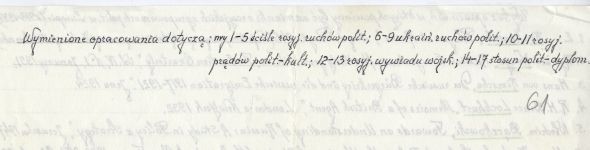 Wymienione opracowania dotyczą: nry 1-5 ściśle rosyj. ruchów polit.; 6-9 ukraiń. ruchów polit.; 10-11 rosyj.
prądów polit-kult.; 12-13 rosyj. wywiadu wojsk.; 14-17 stosun polit-dyplom.
61